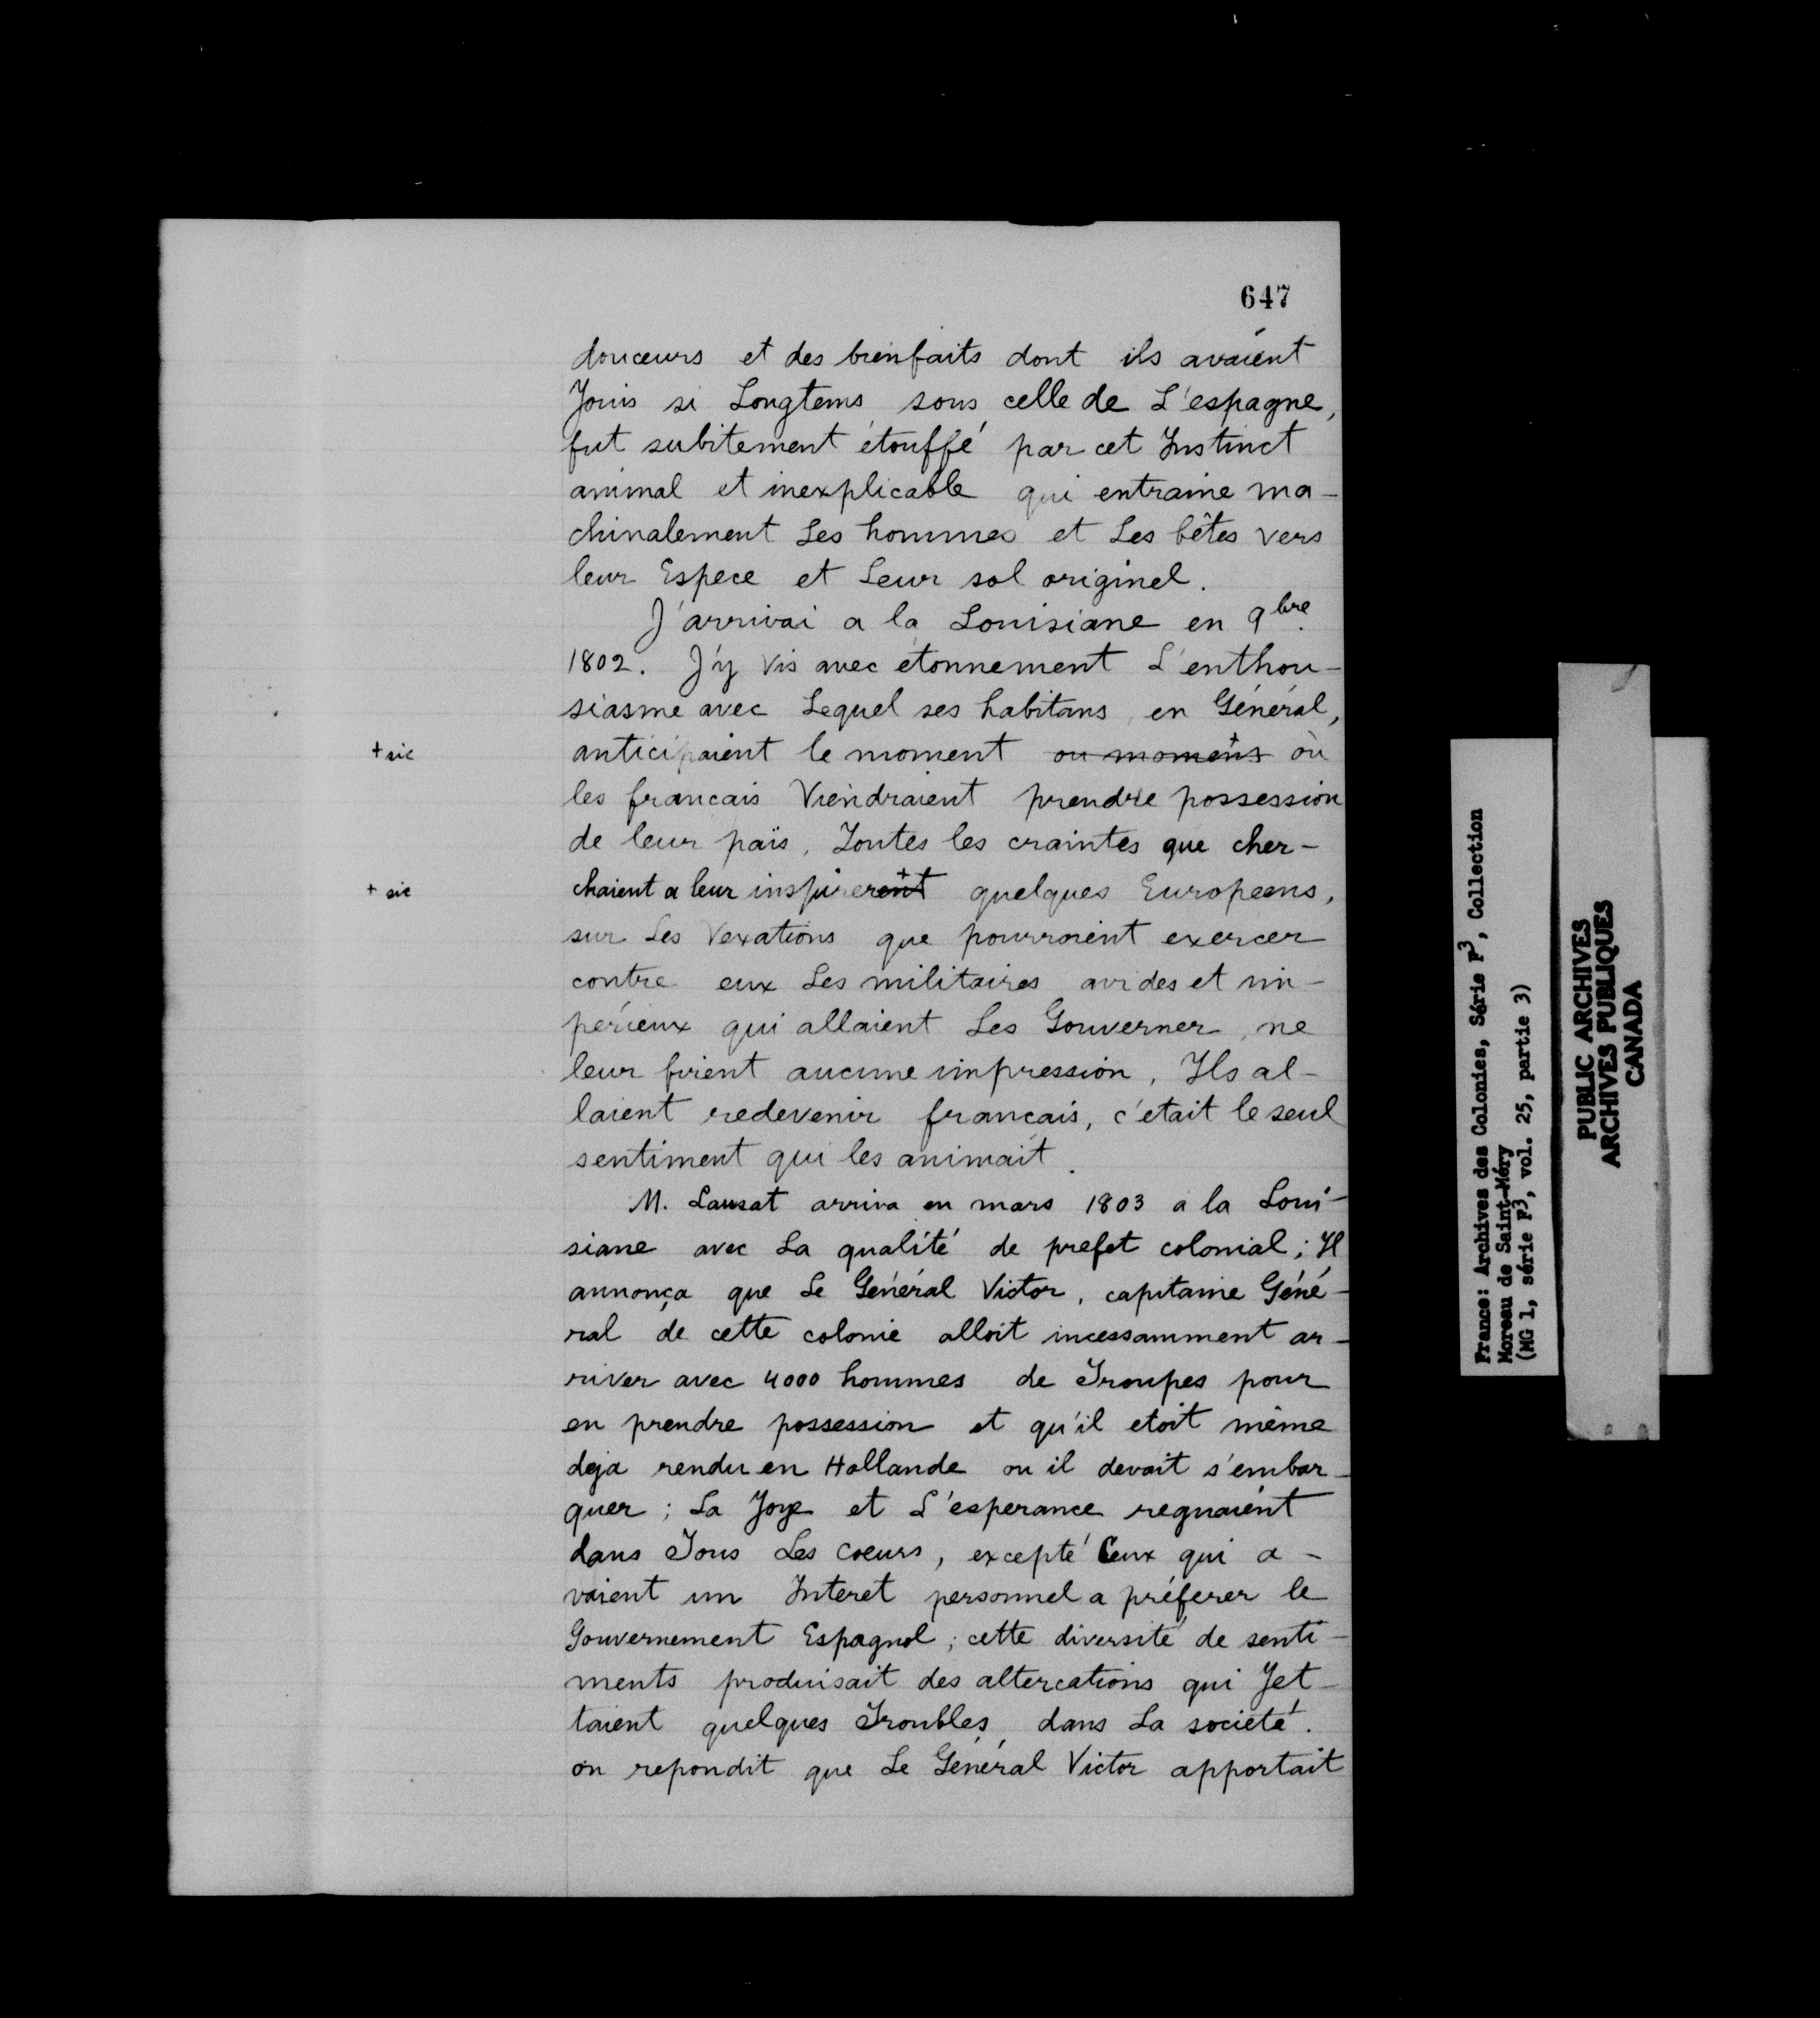 647
douceurs et des bienfaits dont ils avaient
Jouis si Longtems sous celle de L'espagne,
fut subitement étouffé par cet Instinct
animal et inexplicable qui entraine ma-
chinalement Les hommes et Les bêtes vers
leur Espece et Leur sol originel.
J'arrivai a la Louisiane en 9bre
1802. J'y Vis avec etonnement L'enthou-
siasme avec Lequel ses habitans, en Général,
+ sic anticipaient le moment ou momens + où
les francais Viendraient prendre possession
de leur païs. Toutes les craintes que cher-
+ sic chaient a leur inspirerent + quelques Europeens,
sur Les Vexations que pourroient exercer
contre eux Les militaires avides et im-
périeux qui allaient Les Gouverner, ne
leur firent aucune impression. Ils al-
laient redevenir francais, c'etait le seul
sentiment qui les animait.
M. Lausat arriva en mars 1803 a la Loui-
siane avec La qualité de prefet colonial; Il
annonça que Le Général Victor, capitaine Géné-
ral de cette colonie alloit incessamment ar-
river avec 4000 hommes de Troupes pour
en prendre possession et qu'il etoit même
deja rendu en Hollande ou il devait s'embar-
quer; La Joye et L'esperance regnaient
dans Tous Les coeurs, excepté Ceux qui a-
vaient un Interet personnel a préferer le
Gouvernement Espagnol; cette diversité de senti-
ments produisait des altercations qui Jet-
taient quelques Troubles dans La société.
on repondit que Le Général Victor apportait
France: Archives des Colonies, Série F3, Collection
Moreau de Saint-Méry
(MG 1, série F3, vol. 25, partie 3)
PUBLIC ARCHIVES
ARCHIVES PUBLIQUES
CANADA